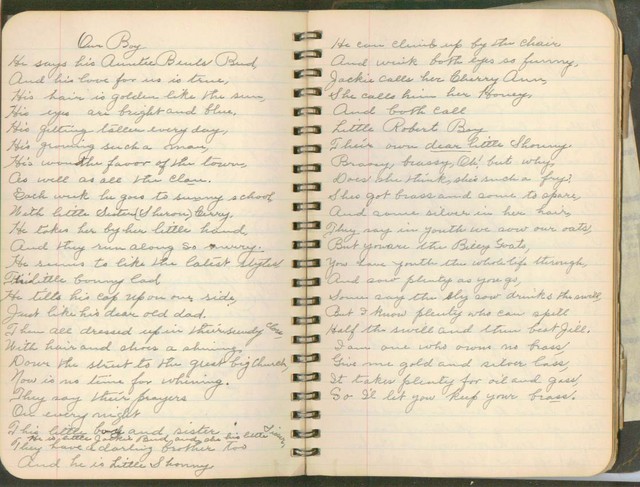 Our Boy
He says his Auntie Beuls Bud,
And his love for us is true,
His hair is golden like the sun,
His eyes are bright and blue,
His getting taller every day,
His growing such a man,
His won the favor of the town,
As well as all the clan.
Each week he goes to sunny school
With little Sister (Sheron) Gerry.
He takes her by her little hand,
And they run along so merry.
He seems to like the latest styles
This little bonny lad
He tells his cap up on one side,
Just like his dear old dad.
Then all dressed up in their sundy clos
With hair and shoes a shining,
Down the street to the great big church,
Now is no time for whining.
They say their prayers
On every night
This little boy and sister
He is little Jackie Bud, and she his little
They have a darling brother too
And he is Little Shonny
He can climb up by the chair
And wink both eyes so funny,
Jackie calls her Cherry Ann,
She calls him her Honey,
And both call
Little Robert Boy
Their own dear little Shonny.
Brassy, brassy, Oh! but why
Does she think, she's such a fry?
She's got brass and some to spare,
And some silver in her hair,
They say in youth we sow our oats,
But you are the Billy Goats,
You save youth the whole life through,
And sow plenty as you go,
Some say the sly sow drinks the swill,
But I know plenty who can spill
Half the swill and then beat Jill.
I am one who owns no brass,
Give me gold and silver lass,
It takes plenty for oil and gass,
So I'll let you keep your brass.